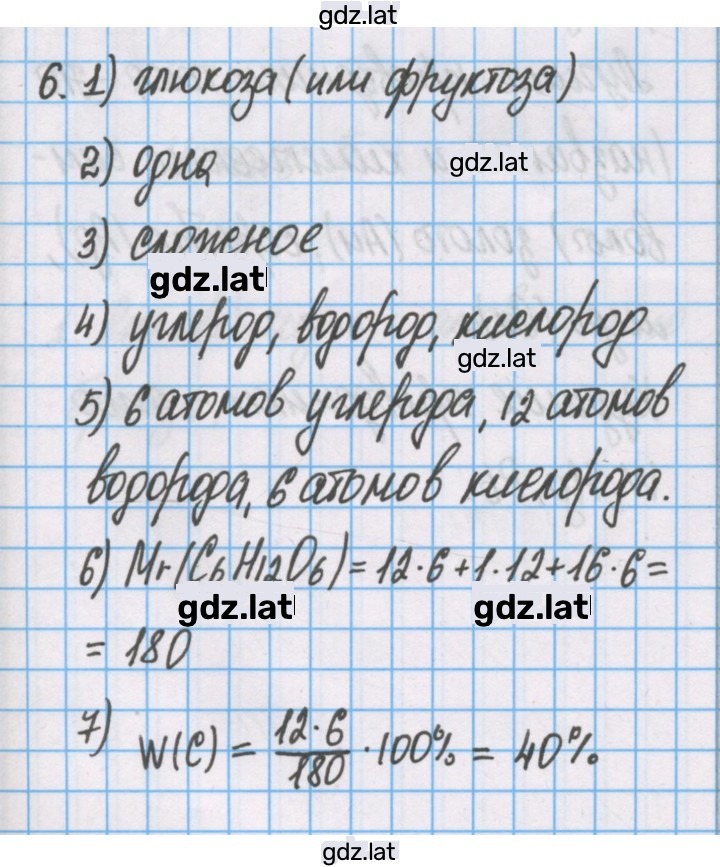 gdz.lat
6. 1) глюкоза (или фруктоза)
2) одна
gdz.lat
3) сложеное
gdz.lat
4) углерод, водород, кислород
gdz.lat
5) 6 атомов углерода, 12 атомов
водорода, 6 атомов кислорода.
6) Mr(C6H12O6) = 12·6+1·12+16·6=
gdz.lat gdz.lat
= 180
7) W(C) = 12·6/180 ·100% = 40%
gdz.lat